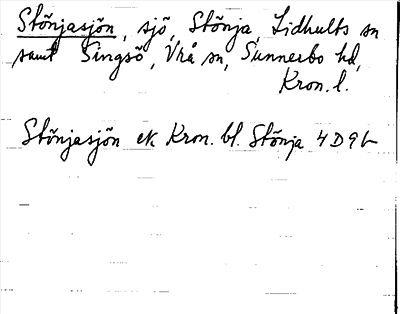 Stönjasjön, sjö, Stönja, Lidhults sn
samt Singsö, Vrå sn, Sunnerbo hd,
Kron. l.
Stönjasjön ek Kron. bl. Stönja 4D9b